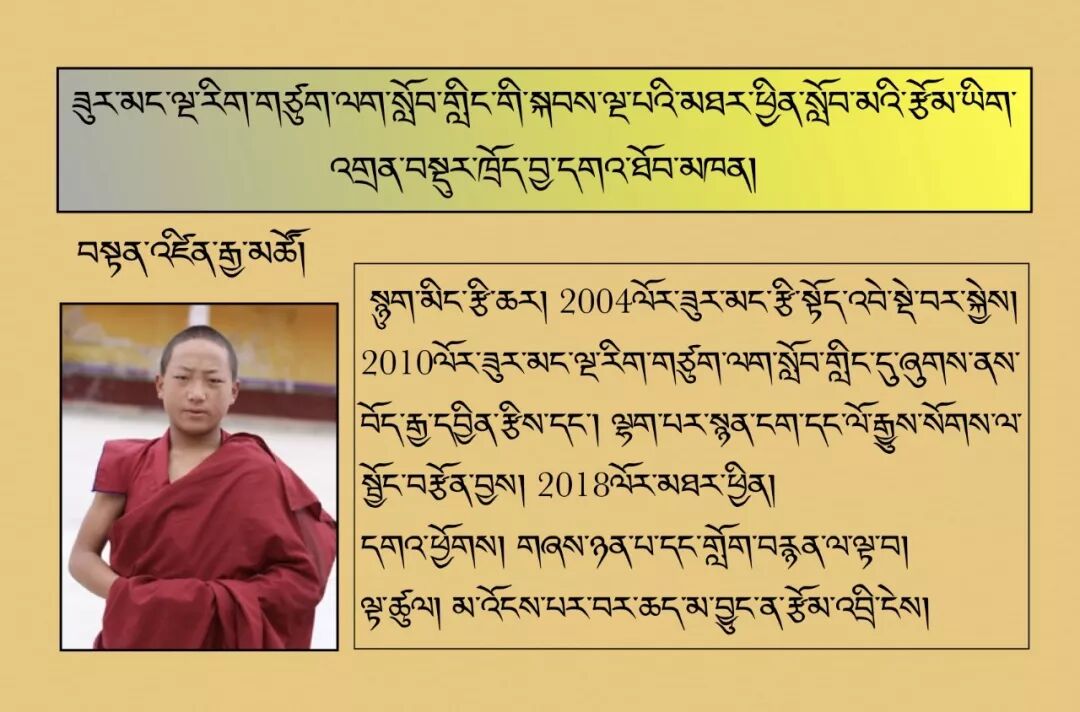 ཟུར་མང་ལྔ་རིག་གཙུག་ལག་སློབ་གླིང་གི་སྐབས་ལྔ་པའི་མཐར་ཕྱིན་སློབ་མའི་རྩོམ་ཡིག་
འགྲན་བསྡུར་ཁྲོད་བྱ་དགའ་ཐོབ་མཁན།
བསྟན་འཛིན་རྒྱ་མཚོ།
སྙུག་མིང་རྩི་ཆར། 2004ལོར་ཟུར་མང་རྩི་སྟོད་འབེ་སྡེ་བར་སྐྱེས།
2010ལོར་ཟུར་མང་ལྔ་རིག་གཙུག་ལག་སློབ་གླིང་དུ་ཞུགས་ནས་
བོད་རྒྱ་དབྱིན་རྩིས་དང་། ལྷག་པར་སྙན་ངག་དང་ལོ་རྒྱུས་སོགས་ལ་
སྦྱོང་བརྩོན་བྱས། 2018ལོར་མཐར་ཕྱིན།
དགའ་ཕྱོགས། གཞས་ཉན་པ་དང་གློག་བརྙན་ལ་ལྟ་བ།
ལྟ་ཚུལ། མ་འོངས་པར་བར་ཆད་མ་བྱུང་ན་རྩོམ་འབྲི་ངེས།